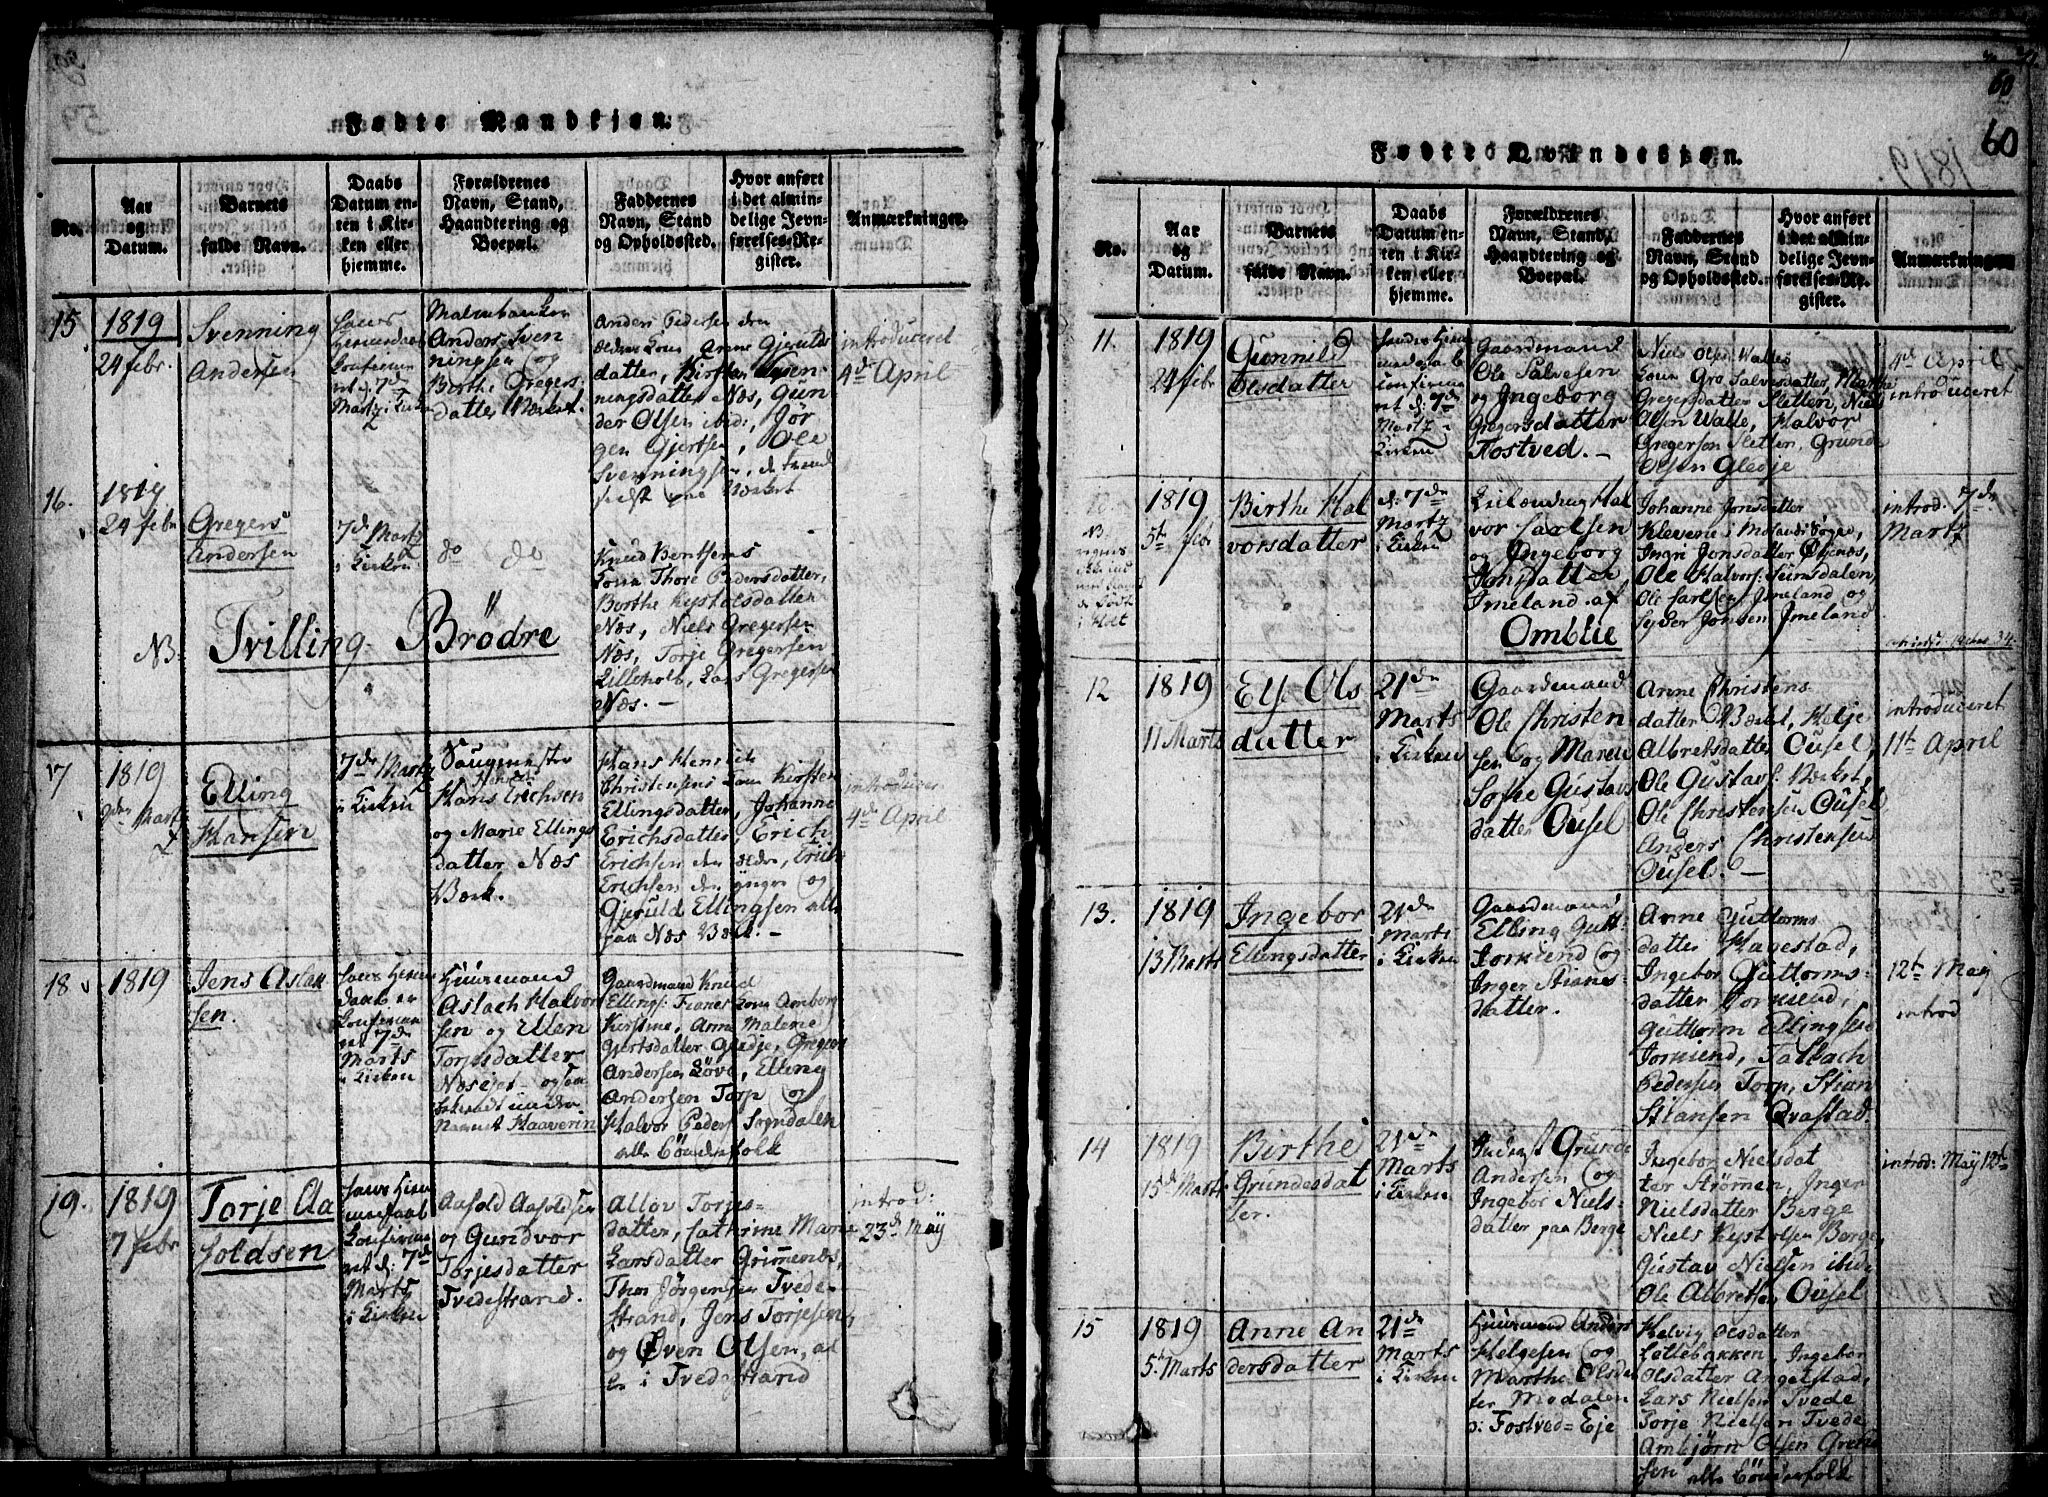 Fødte Mandkjøn.
No.
Aar
og
Datum.
Barnets
fulde Navn.
Daabs
Datum en-
ten i Kir-
ken eller
hjemme.
Forældrenes
Navn, Stand,
Haandtering og
Boepæl.
Faddernes
Navn, Stand
og Opholdssted.
Hvor anført
i det almin-
delige Jevn-
førelses-Re-
gister.
Anmærkninger.
15
1819
24 febr.
Svenning
Andersen
Anders Sven
ningsen og
Berthe Gregers
datter Værket.
Anders Pedersen den
ældres Kone Anne Gjerulds
datter,
ningsdatter Næs, Gun
der Olsen ibid:, Jør
gen Gjertsen, Ole
Svenningsen,
introduceret
4de April
16.
1819
24 febr
Gregers
Andersen
7de Martz
i Kirken
do do
Knud Bentsens
Kona Thore Pedersdatter,
Berthe
Næs, Niels Gregersen
Næs, Torje Gregersen
Lilleholt, Lars Gregersen
Næs. —
NB: Tvilling Brødre
17
1819
Elling
Hansen
7de Martz
i Kirken
Hans Erichsen
og Marie Ellings
datter Næs
Værk.
Hans Henrik
Christensens Kone Kirsten
Ellingsdatter, Johanne
Erichsdatter, Erich
Erichsen den ældre, Erich
Erichsen den yngre og
Gjeruld Ellingsen alle
paa Næs Værk. —
introducer
4de April
18
1819
Jens Aslak
sen.
7de
Marts
i Kirken
Huusmand
Aslach Halvor
sen og Ellen
Torjesdatter
Næs eje
Gaardmand Knud
Ellings: Fianes Kona Amborg
Kirstine, Anne Malene
Gjertsdatter Gledje, Gregers
Andersen Løve, Elling
Andersen Torp og
Halvor Peders: Songdalen
alle Bøndefolk
19.
1819
7 febr
Torje Aa
soldsen
7de
Marts
i Kirken
Aasold Aasoldsen
og Gundvor
Torjesdatter
Tvedestrand.
Allov Torjes-
datter, Cathrine Marie
Larsdatter Grimenæs,
Thor Jørgensen Tvede-
strand, Jens Torjesen,
og Øven Olsen, al
le i Tvedestrand
introd:
23de Maÿ
60
60
1819.
Fødte Qvindekjøn.
No.
Aar
og
Datum.
Barnets
fulde Navn.
Daabs
Datum en-
ten i Kir-
ken eller
hjemme.
Forældrenes
Navn, Stand,
Haandtering og
Boepæl.
Faddernes
Navn, Stand
og Opholdssted.
Hvor anført
i det almin-
delige Jevn-
førelses-Re-
gister.
Anmærkninger.
11.
1819
24 febr
Gunnild
Olsdatter
7de
Martz i
Kirken
Gaardmand
Ole Salvesen
og Ingeborg
Gregersdatter
Fostved. —
Niels Olsen Walles
Kona Gro Salvesdatter, Marthe
Gregersdatter Sletten, Niels
Olsen Walle, Halvor
Gregersen Sletten, Grunde
Olsen Gledje
4de April
introduceret
1819
5te febr
Birthe Hal
vorsdatter
d: 7de
Martz
i Kirken
vor Carlsen
og Ingeborg
Jonsdatter
Imeland af
Omblie
Johanne Jonsdatter
Klevene i
Ingri Jonsdatter
Ole Halvors:
Ole Carlsen Imeland og
Jonsen Imeland
introd: 7de
Martz
12
1819
11 Marts
Ols
datter
21de
Marts
i Kirken
Gaardmand
Ole Christen
sen og Maren
Sofie Gustavs
datter Ousel
Anne Christens
datter Værket, Helje
Albretsdatter Ousel,
Ole Gustavs: Værket,
Ole Christensen Ousel
Anders Christensen
Ousel. —
introduceret
11te April
13.
1819
13 Marts
Ingebor
Ellingsdatter
21de
Marts
i Kirken
Gaardmand
Elling Gut-
og
Inger Stians-
datter.
Anne Guttorms
datter Hagestad,
Ingebor Guttorms-
datter
Guttorm Ellingsen
Tallach
Pedersen Torp, Stian
Hansen Qvastad.
12te Maÿ
introd
14
1819
15de Marts
Birthe
Grundesdat
ter.
21de
Marts
i Kirken
Inderst Grunde
Andersen og
Ingebor Niels-
datter paa Berge
Ingebor Nielsdat
ter Strømen, Inger
Nielsdatter Berge
Niels Berge,
Gustav Nielsen ibid:
Ole Albretsen Ousel
introd: Maÿ 12te
15
1819
5t Marts
Anne An
dersdatter
21de
Marts
i Kirken
Huusmand Anders
Helgesen og
Marthe Olsdat
ter Modalen
p: Fostved=Eje
Helvig Olsdatter
Ingebor
Olsdatter Angelstad,
Lars Nielsen Tvede
Torje Nielsen Tvede
Ambjørn Olsen
alle Bønderfolk